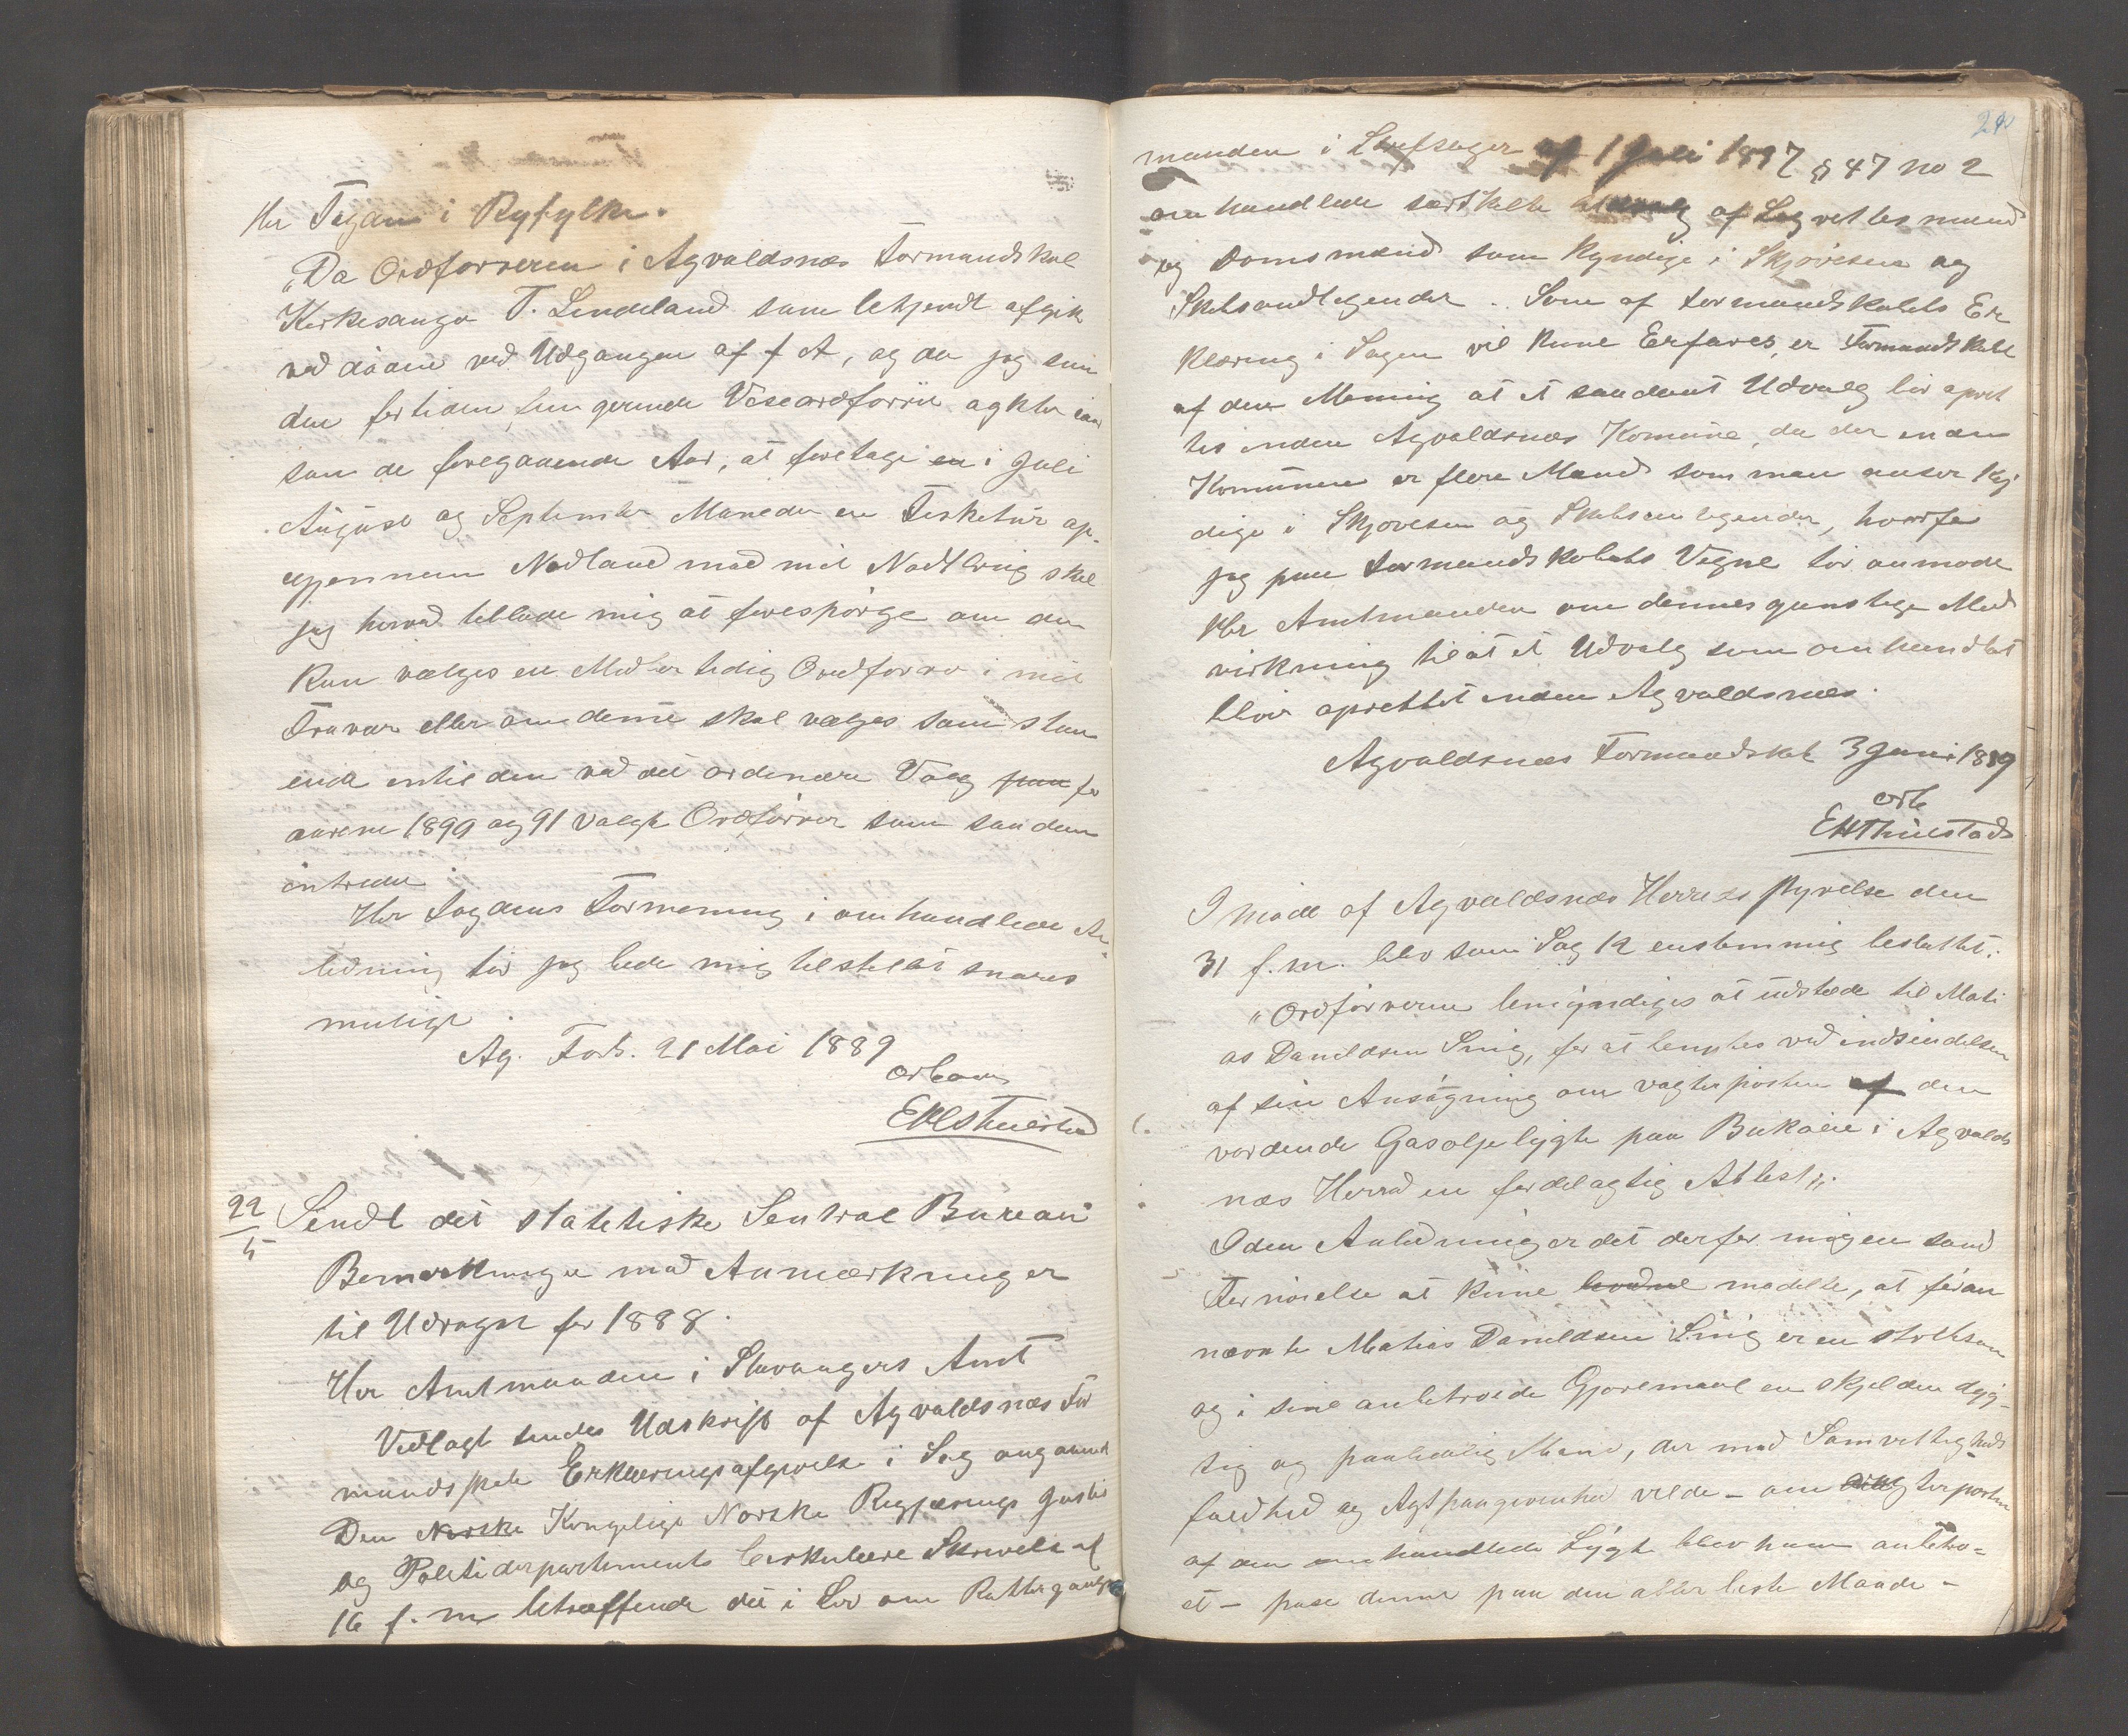 Hr Fogden i Ryfylke.
"Da Ordforreren i Agvaldsnæs Formandskab
Kirkesanger T. Lindeland som bekjendt afgik
ved døden ved Udgangen af f A, og da jeg som
den fortiden fungerende Viseordfører agter iaar
som de foregaaende Aar, at foretage en i Juli
August og September Maneder en Fisketur op-
gjennem Nodland med mit Nodtbrug skal
jeg herved tillade mig at forespørge om der
kan vælges en Midlertidig Ordfører i mit
Fravær eller om denne skal vælges som stan
ende intil den ved det ordinære Valg paa for
aarene 1890 og 91 valgte Ordfører som saadan
intreder
Hr Fogdens Formening i omhandlede An
ledning tør jeg bede mig tilstilet snarest
muligt.
Ag. Forb. 21 Mai 1889
ærbod
E H Thuestad
22/5 Sendt det statetiske Sentral Bureau
Bemerkninger med Anmærkninger
til Udragst for 1888.
Hr Amtmanden i Stavangers Amt
Vedlagt sendes Udskrift af Agvaldsnæs For
mandsskabs Erklæringsafgivelse i Sag angaaende
Den Norske Kongelige Norske Regjærings Justis
og Politidepartements Cirkulære Skrivelse af
16 f. m betræffende det i Lov om Rettergangs
manden i Strafsager af 1 Juli 1887 § 47 no 2
omhandlede særskilte Udvalg af Lagrettesmænd
og Domsmænd som kyndige i Skjøvesen og
Skibsanliggender. Som af Formandskabets Er
klæring i Sagen vil kune Erfares, er Formandskabet
af den Mening at et saadant Udvalg bør opret
tes inden Agvaldsnæs Komune, da der inden
Komunen er flere Mænd som man anser kyn
dige i Skjøvesen og Skibsanliggender, hvorfor
jeg paa Formandskabets Vegne tør anmode
Hr Amtmanden om dennes gunstige Med
virkning til at et Udvalg som omhandlet
bliver oprettet inden Agvaldsnæs.
Agvaldsnæs Formandskab 3 Juni 1889
ærb
E H Thuestad
I møde af Agvaldsnæs Herredsstyrelse den
31 f. m. blev som Sag 12 enstemmig besluttet:
"Ordføreren bemyndiges at udstede til Mati
as Danieldsen Snig, for at benyttes ved indsendelsen
af sin Ansøgning om vagterposten af den
vordende Gasoljelygte paa Bukøie i Agvalds
næs Herred en fordelagtig Attest".
I den Anledning er det derfor mig en sand
Fornøielse at kune meddele, at foran
nævnte Matias Danieldsen Snig er en stolbsom
og i sine anbetroede Gjøremaal en skjelden dyg-
tig og paalidelig Mand, der med Samvittigheds
fuldhed og Agtpaagivenhed vilde - om vagterposten
af den omhandlede Lygte blev ham anbetro=
et - passe denne paa den allerbeste Maade -